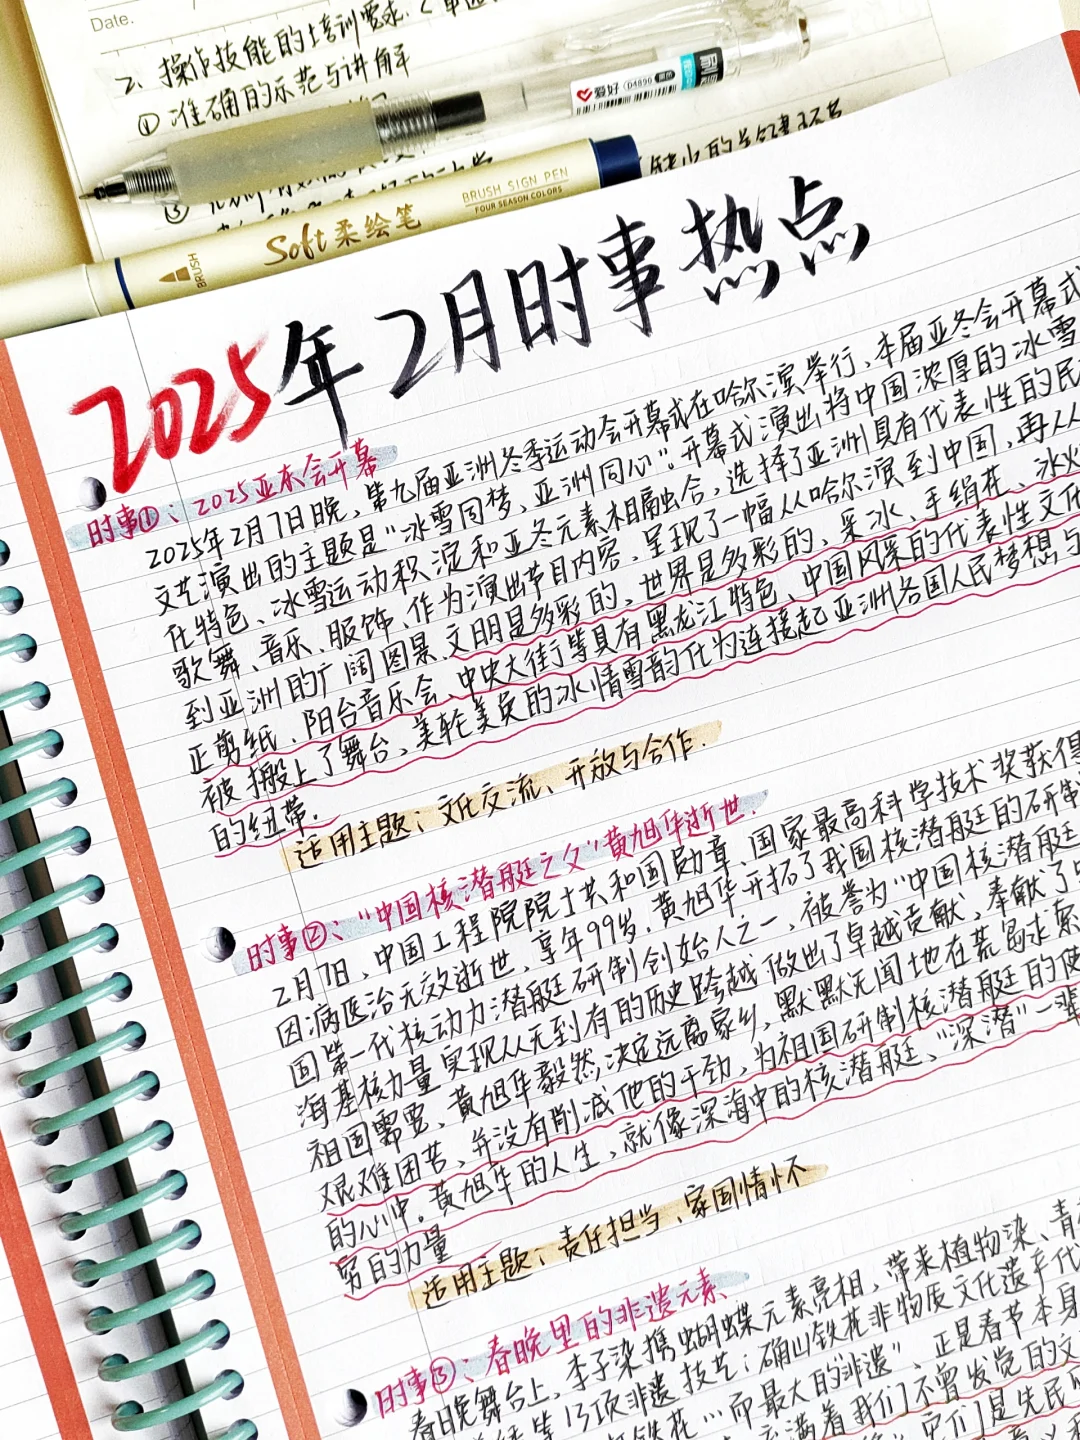 Date.
2、操作技能的培训需求.
①准确的示范与讲解
③
爱好 04890
Soft 柔绘笔
BRUSH SIGN PEN
FOUR SEASON COLORS
BRUSH
2025年2月时事热点
时事①：2025亚冬会开幕
2025年2月7日晚，第九届亚洲冬季运动会开幕式在哈尔滨举行，本届亚冬会开幕式
文艺演出的主题是"冰雪同梦，亚洲同心"。开幕式演出将中国浓厚的冰雪
化特色、冰雪运动积淀和亚冬元素相融合，选择了亚洲具有代表性的民
歌舞、音乐、服饰、作为演出节目内容、呈现了一幅从哈尔滨到中国，再从
到亚洲的广阔图景.文明是多彩的、世界是多彩的，采冰、手绢花、冰火
正剪纸、阳台音乐会、中央大街等具有黑龙江特色、中国风采的代表性文化
被搬上了舞台、美轮美奂的冰情雪韵化为连接起亚洲各国人民梦想与
的纽带.
适用主题：文化交流、开放与合作.
时事②："中国核潜艇之父"黄旭华逝世.
2月7日，中国工程院院士共和国勋章、国家最高科学技术奖获得
因病医治无效逝世，享年99岁.黄旭华开拓了我国核潜艇的研制
国第一代核动力潜艇研制创始人之一，被誉为"中国核潜艇
海基核力量实现从无到有的历史跨越做出了卓越贡献，奉献了
祖国需要、黄旭华毅然决定远离家乡，默默无闻地在荒岛求索
艰难困苦，并没有削减他的干劲，为祖国研制核潜艇的使
的心中。黄旭华的人生，就像深海中的核潜艇、"深潜"一辈
穷的力量
适用主题：责任担当、家国情怀
时事③：春晚里的非遗元素
春晚舞台上，李子染携蝴蝶元素亮相，带来植物染、青
等13项非遗技艺；确山铁花非物质文化遗产代
铁花…而最大的"非遗"，正是春节本身
充满着我们不曾发觉的文
它们是先民